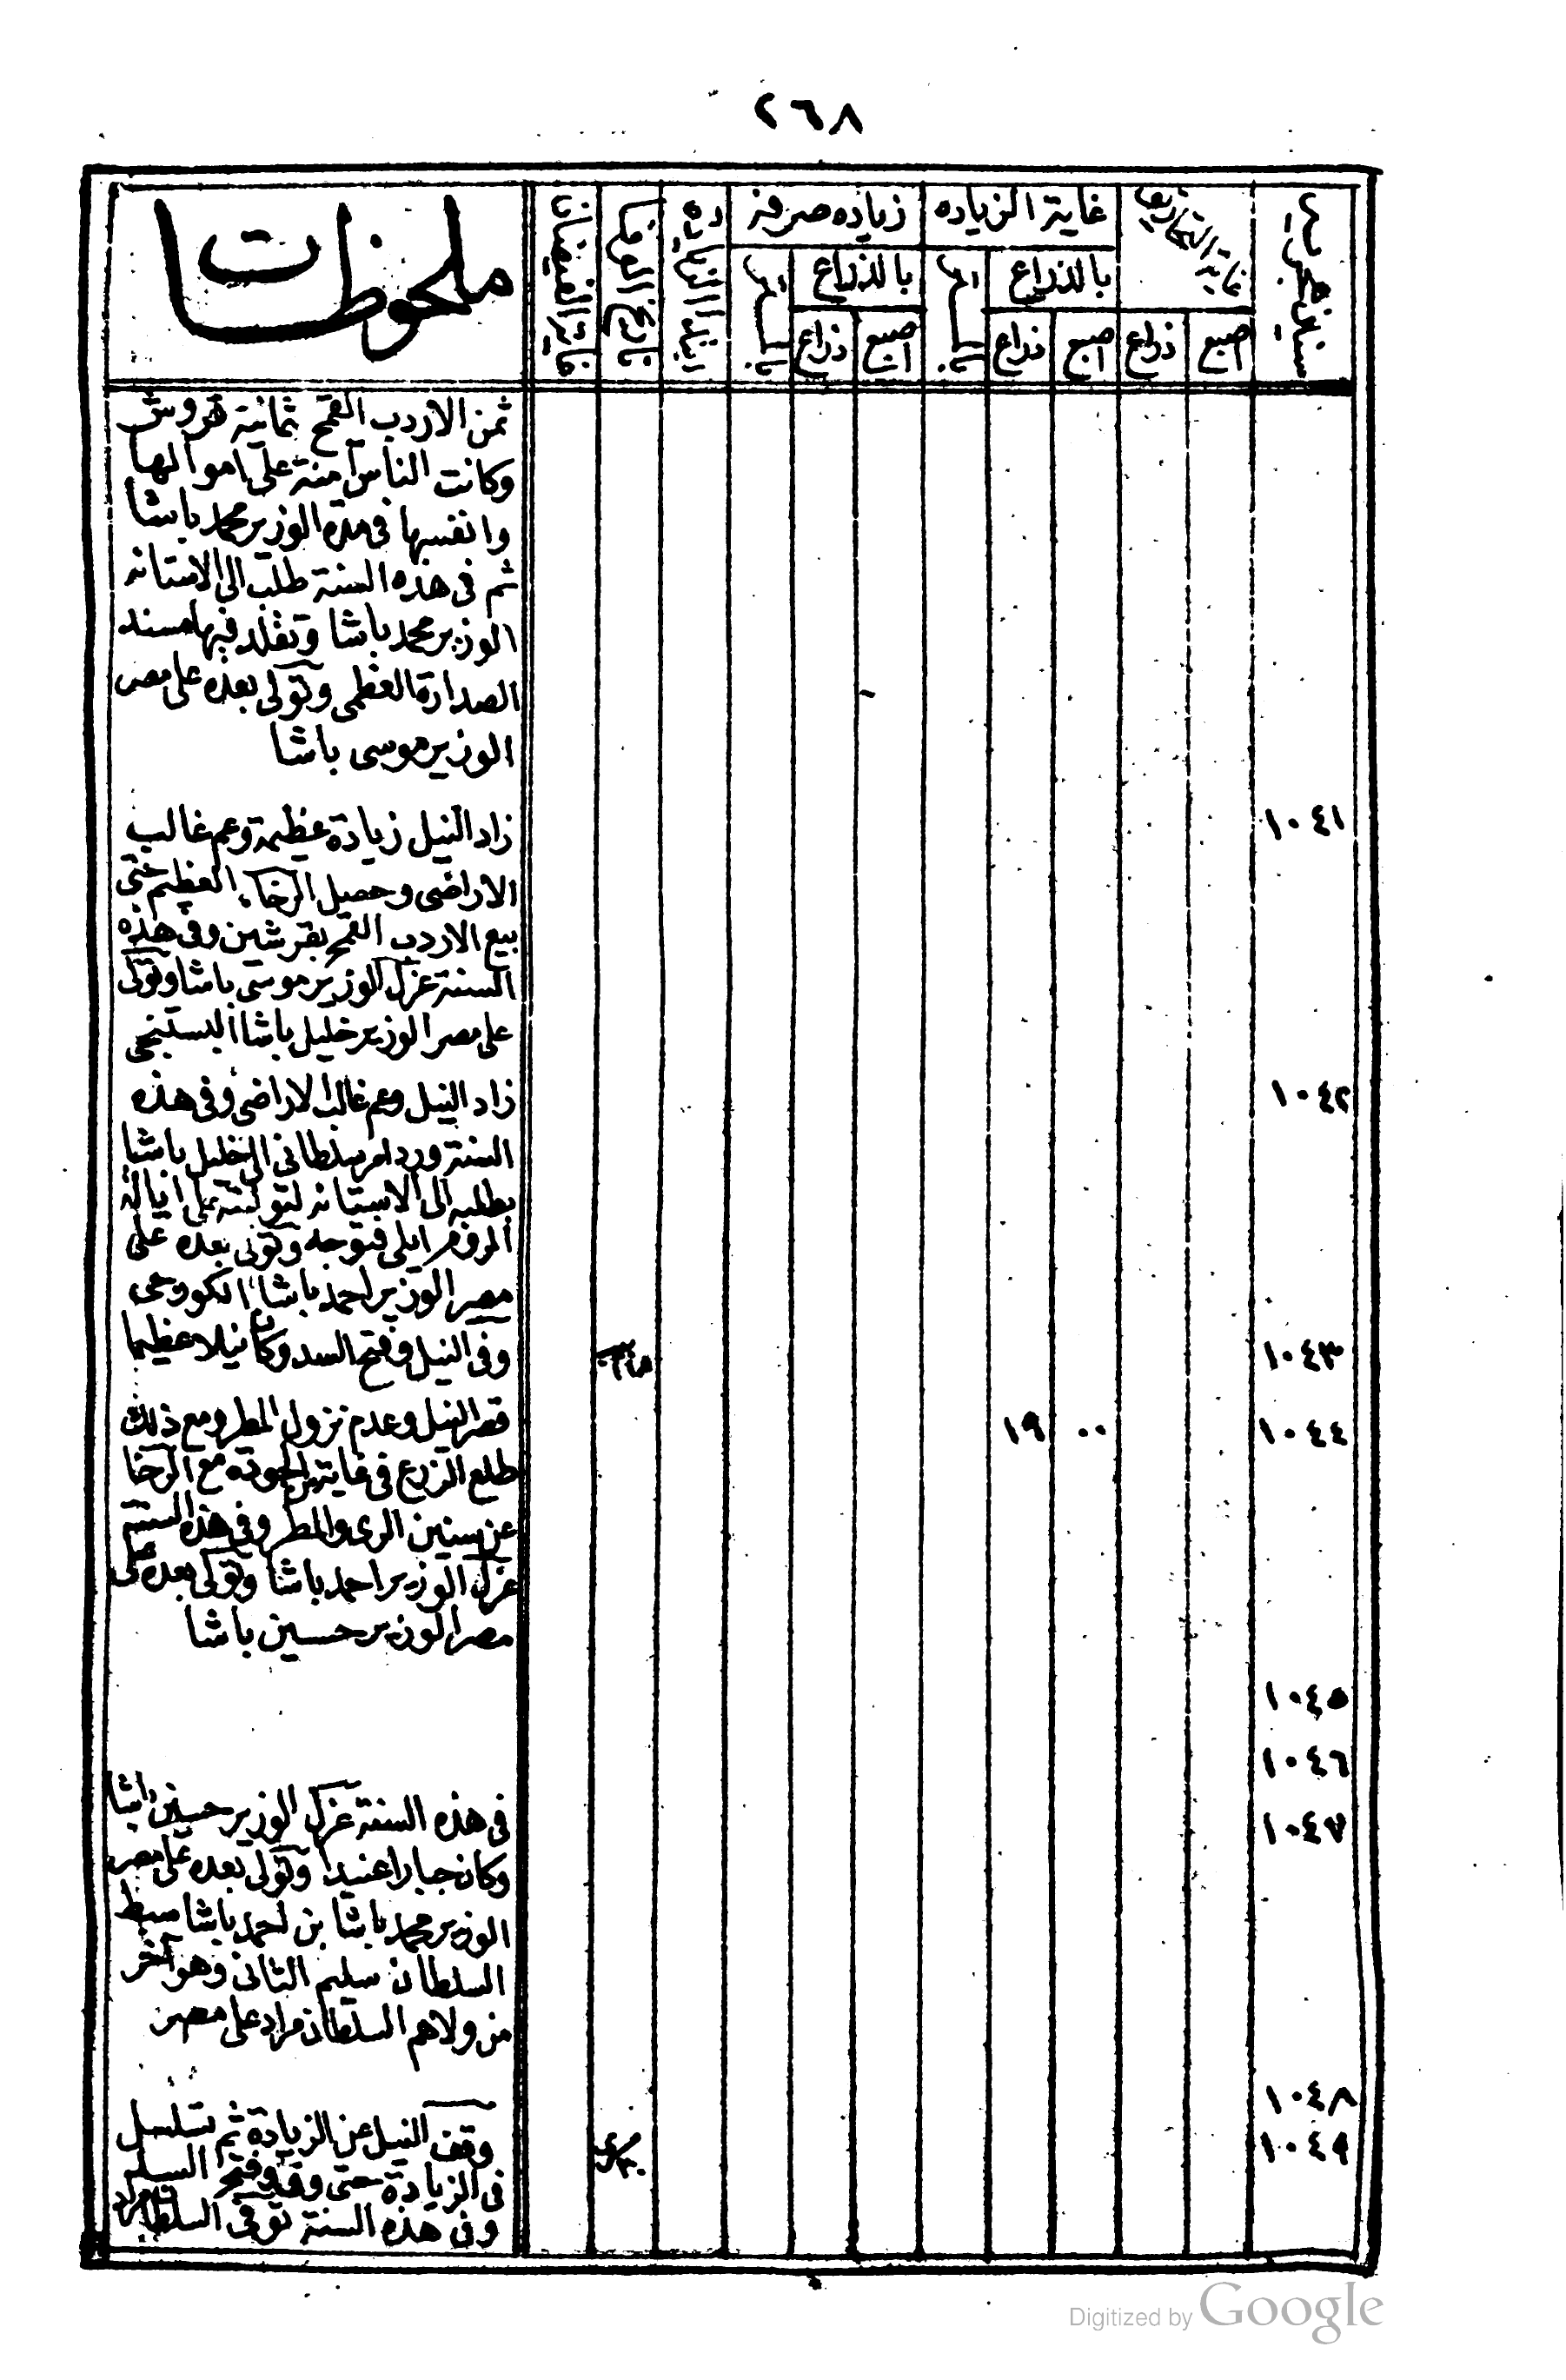 ٢٦٨
سنين هجرية
غاية التحاريق
غاية الزياده
زياده صرفه
تاريخ الوفا
ملحوظات
بالذراع
بالذراع
اصبع
ذراع
اصبع
ذراع
اصبع
ذراع
ثمن الاردب القمح ثمانية قروش
وكانت الناس آمنة على اموالها
وانفسها فى مدة الوزير محمد باشا
ثم فى هذه السنة طلب الى الاستانه
الوزير محمد باشا وتقلد فيها مسند
الصدارة العظمى وتولى بعده على مصر
الوزير موسى باشا
١٠٤١
زاد النيل زيادة عظيمة وعم غالب
الاراضى وحصل الرخاء العظيم حتى
بيع الاردب القمح بقرشين وفى هذه
السنة عزل الوزير موسى باشا وتولى
على مصر الوزير خليل باشا البستنجى
١٠٤٢
زاد النيل وعم غالب الاراضى وفى هذه
السنة ورد امر سلطانى الى خليل باشا
بطلبه الى الاستانه لتوليته على ايالة
الروم ايلى فتوجه وتولى بعده على
مصر الوزير احمد باشا الكورجى
١٠٤٣
وفى النيل وفتح السد وكان نيلا عظيما
١٠٤٤ ٠٠ ١٩
قصر النيل وعدم نزول المطر ومع ذلك
طلع الزرع فى غاية الجودة مع الرخا
عن سنين الرى والمطر وفى هذه السنة
عزل الوزير احمد باشا وتولى بعده على
مصر الوزير حسين باشا
١٠٤٥
١٠٤٦
١٠٤٧
فى هذه السنة عزل الوزير حسين باشا
وكان جبارا عنيدا وتولى بعده على مصر
الوزير محمد باشا بن احمد باشا سبط
السلطان سليم الثانى وهو آخر
من ولاهم السلطان مراد على مصر
١٠٤٨
١٠٤٩
وقف النيل عن الزيادة ثم تسلسل
فى الزيادة حتى وفى وفتح السد
وفى هذه السنة توفى السلطان مراد
Digitized by Google